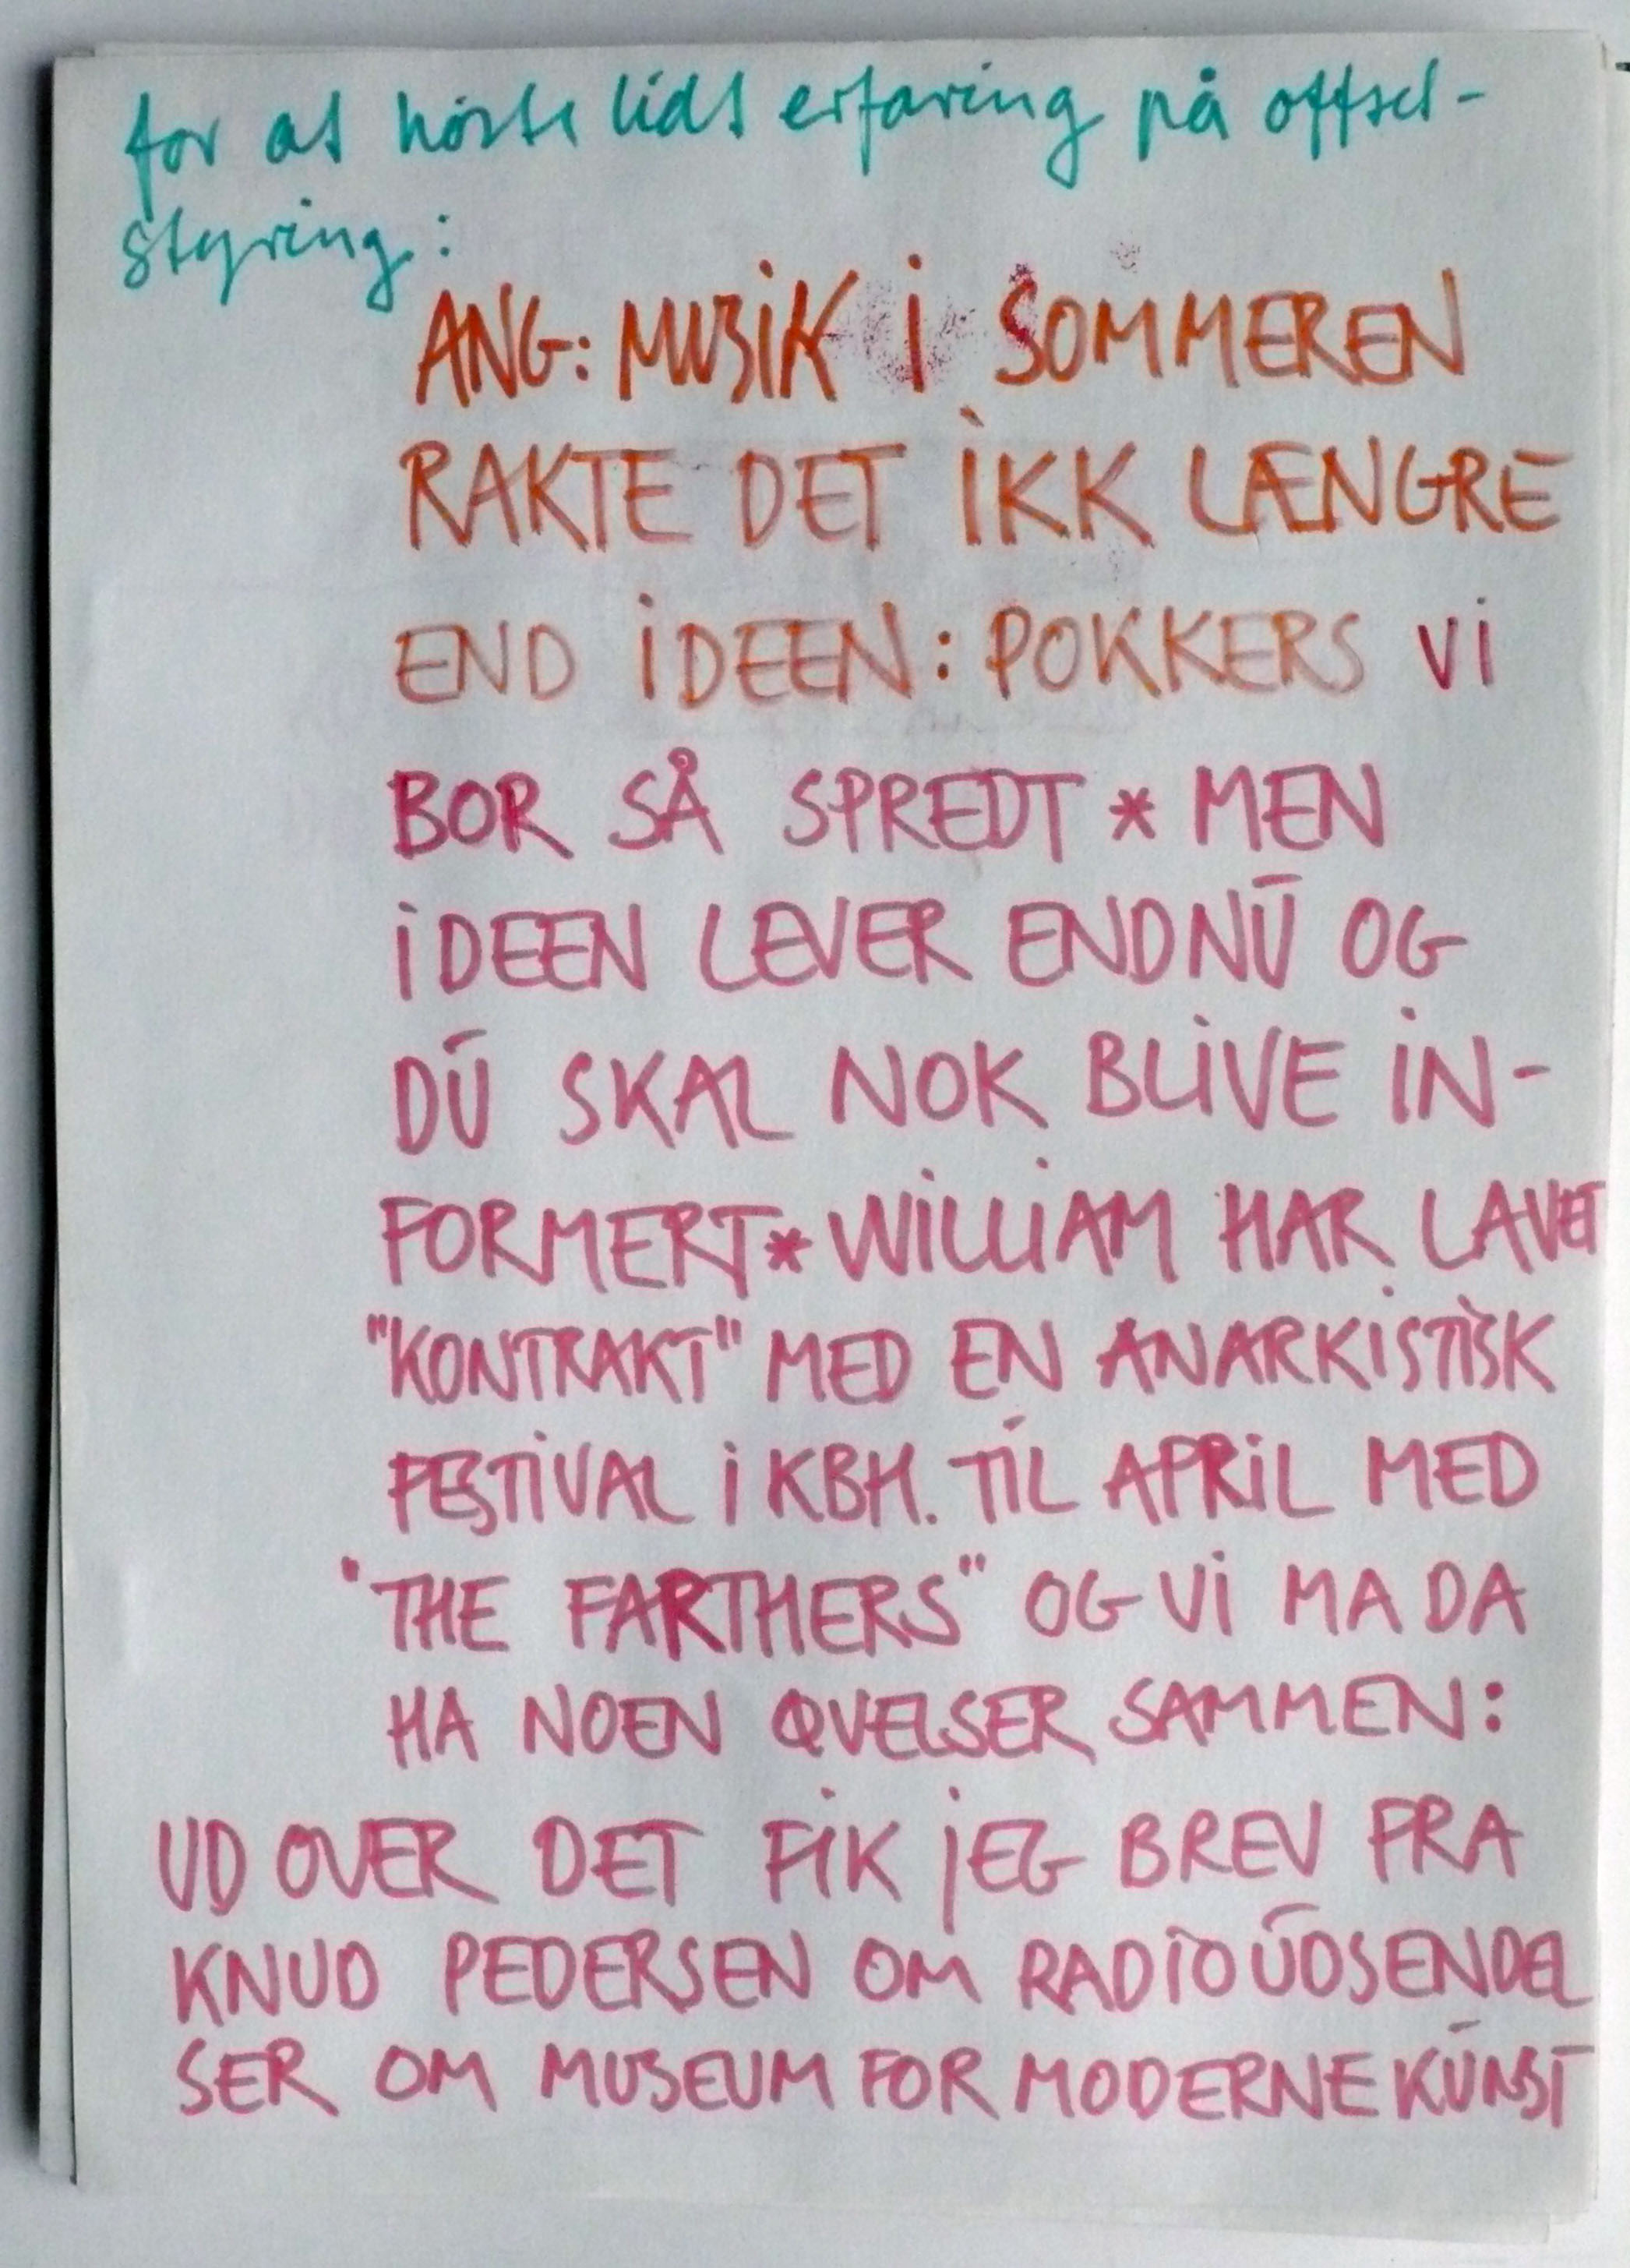 for at høste lidt erfaring på offset-
styring:
ANG: MUSIK I SOMMEREN
RAKTE DET IKK LÆNGRE
END IDEEN: POKKERS VI
BOR SÅ SPREDT * MEN
IDEEN LEVER ENDNŪ OG
DŪ SKAL NOK BLIVE IN-
FORMERT * WILLIAM HAR LAVET
"KONTRAKT" MED EN ANARKISTISK
FESTIVAL I KBH. TIL APRIL MED
"THE FARTHERS" OG VI MA DA
HA NOEN ØVELSER SAMMEN:
UD OVER DET FIK JEG BREV FRA
KNUD PEDERSEN OM RADIOŪDSENDEL
SER OM MUSEUM FOR MODERNE KŪNST